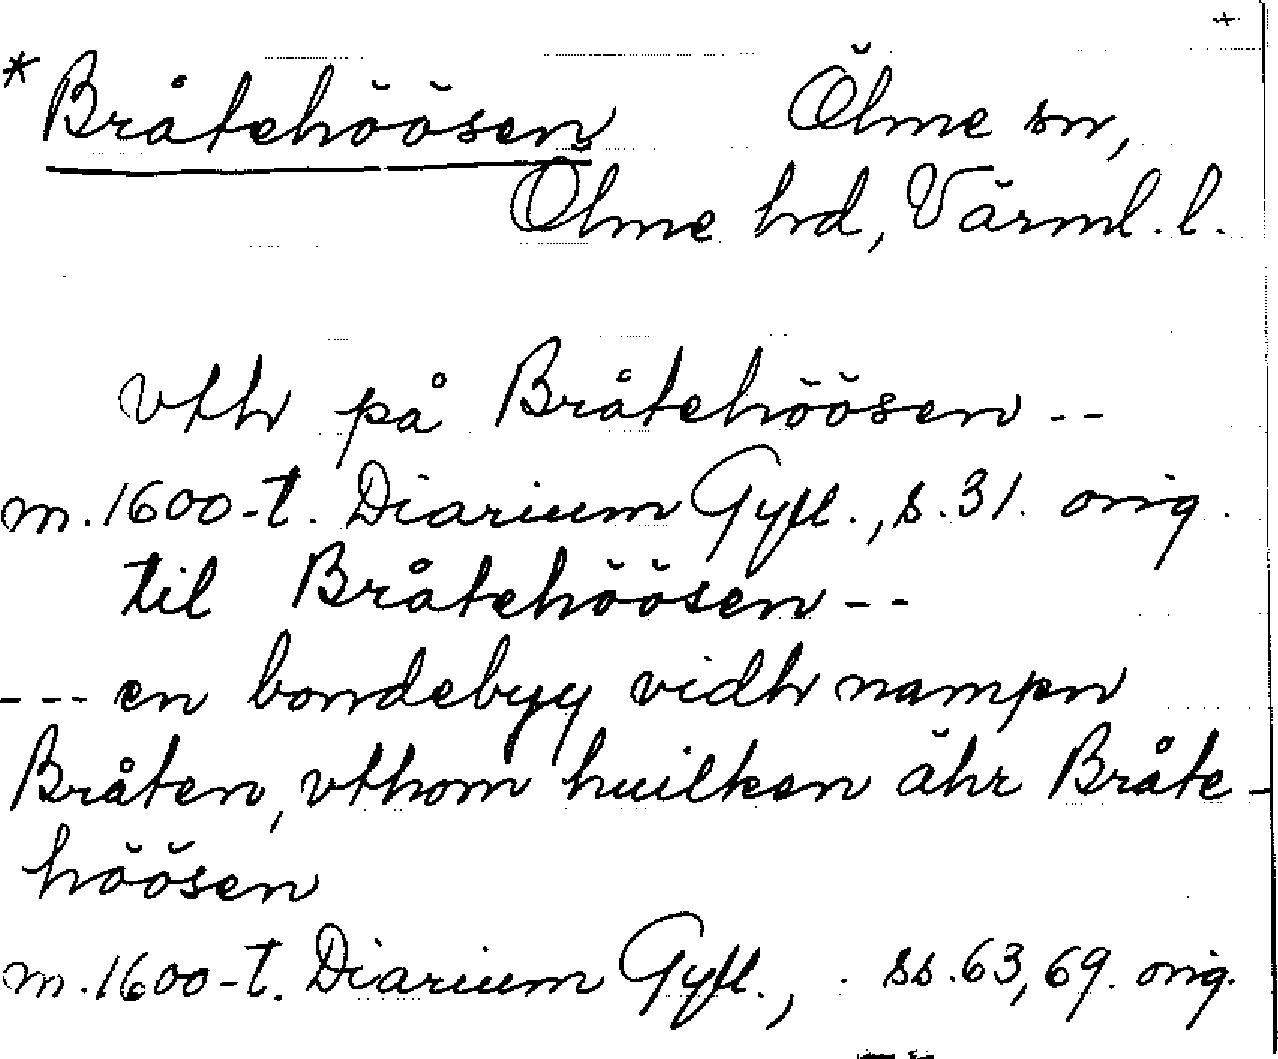 *Bråtehöösen Ölme sn,
Ölme hd, Värml. l.
vth på Bråtehöösen --
m. 1600-t. Diarium Gyll., s. 31. orig.
til Bråtehöösen --
--- en bondebyy vidh nampn
Bråten, vthom huilken ähr Bråte-
höösen
m. 1600-t. Diarium Gyll., ss. 63, 69. orig.